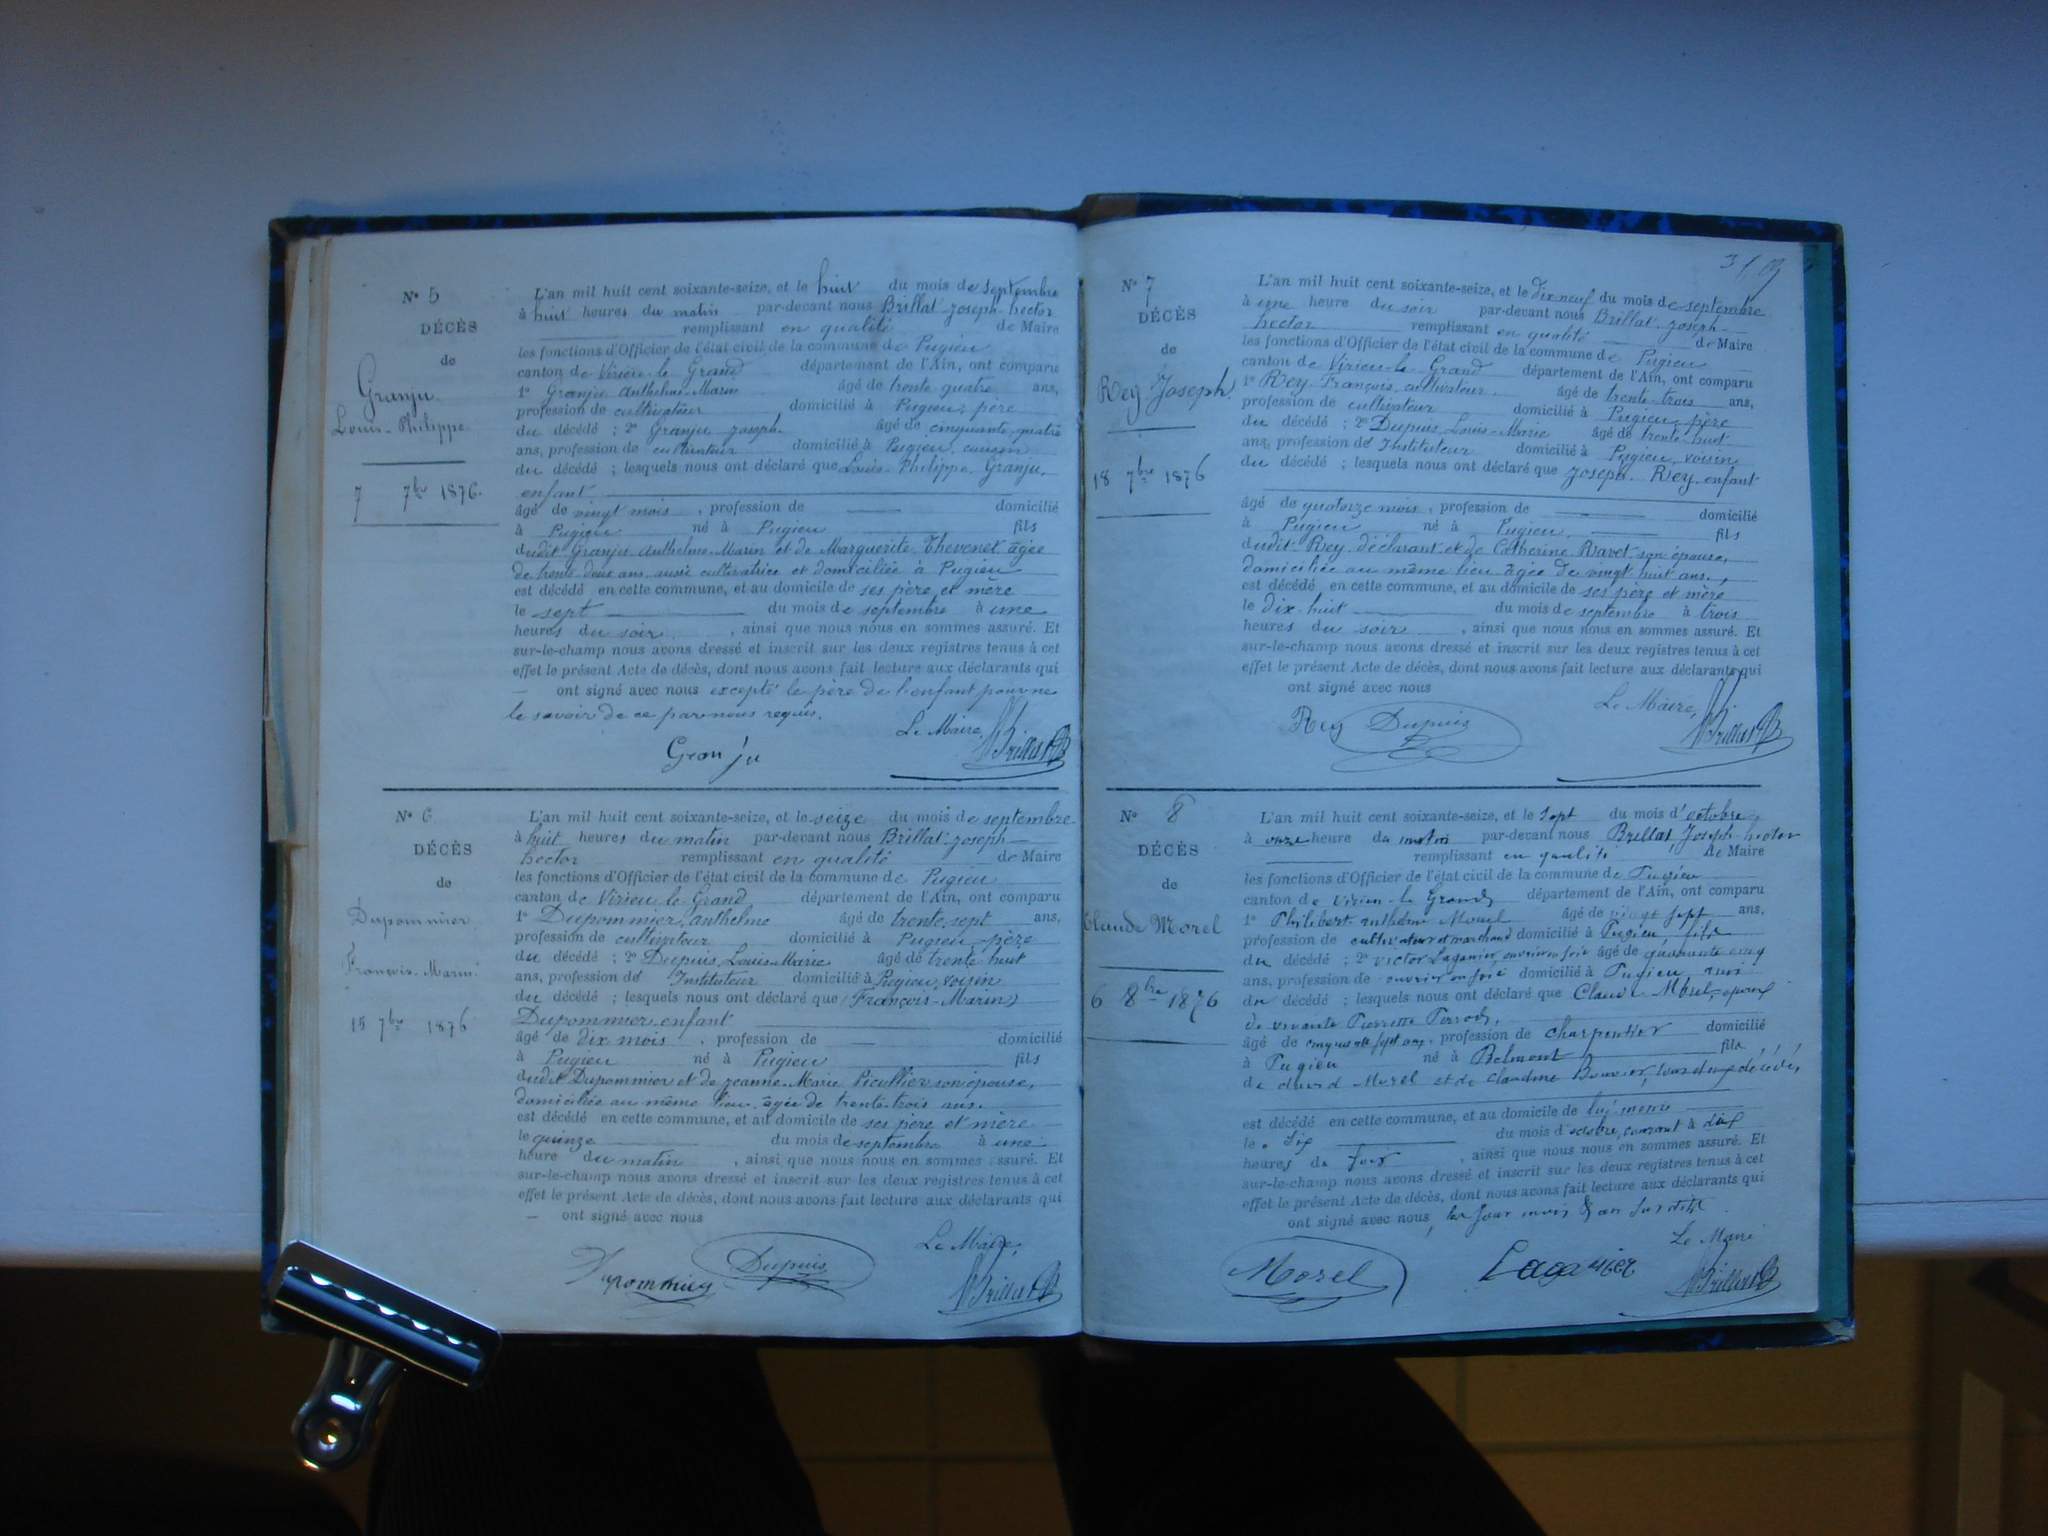 N° 5
DÉCÈS
de
Granju
Louis-Philippe
7 7bre 1876.
L'an mil huit cent soixante-seize, et le huit du mois de septembre
à huit heures du matin par-devant nous Brillat-Joseph-hector
remplissant en qualité de Maire
les fonctions d'Officier de l'état civil de la commune de Pugieu
canton de Virieu-le-Grand département de l'Ain, ont comparu
1° Granju Anthelme-Marin âgé de trente quatre ans,
profession de cultivateur domicilié à Pugieu, père
du décédé ; 2° Granju Joseph, âgé de cinquante quatre
ans, profession de cultivateur domicilié à Pugieu, cousin
du décédé ; lesquels nous ont déclaré que Louis-Philippe Granju,
enfant
âgé de vingt mois , profession de — domicilié
à Pugieu né à Pugieu fils
dudit Granju Anthelme-Marin et de Marguerite Thevenet âgée
de trente deux ans, aussi cultivatrice et domiciliée à Pugieu
est décédé en cette commune, et au domicile de ses père et mère
le sept du mois de septembre à une
heures du soir , ainsi que nous nous en sommes assuré. Et
sur-le-champ nous avons dressé et inscrit sur les deux registres tenus à cet
effet le présent Acte de décès, dont nous avons fait lecture aux déclarants qui
— ont signé avec nous excepté le père de l'enfant pour ne
le savoir de ce par nous requis.
Le Maire,
Granju Brillat
N° 6
DÉCÈS
de
Dupommier
François-Marin
15 7bre 1876
L'an mil huit cent soixante-seize, et le seize du mois de septembre
à huit heures du matin par-devant nous Brillat-Joseph-
hector remplissant en qualité de Maire
les fonctions d'Officier de l'état civil de la commune de Pugieu
canton de Virieu-le-Grand département de l'Ain, ont comparu
1° Dupommier, Anthelme âgé de trente-sept ans,
profession de cultivateur domicilié à Pugieu, père
du décédé ; 2° Dupuis, Louis-Marie âgé de trente-huit
ans, profession de Instituteur domicilié à Pugieu, voisin
du décédé ; lesquels nous ont déclaré que (François-Marin)
Dupommier, enfant
âgé de dix mois , profession de — domicilié
à Pugieu né à Pugieu fils
dudit Dupommier et de Jeanne-Marie Picullier son épouse,
domiciliée au même lieu, âgée de trente-trois ans.
est décédé en cette commune, et au domicile de ses père et mère
le quinze du mois de septembre à une
heure du matin , ainsi que nous nous en sommes assuré. Et
sur-le-champ nous avons dressé et inscrit sur les deux registres tenus à cet
effet le présent Acte de décès, dont nous avons fait lecture aux déclarants qui
— ont signé avec nous
Le Maire,
Dupommier Dupuis Brillat
N° 7
DÉCÈS
de
Rey Joseph
18 7bre 1876
L'an mil huit cent soixante-seize, et le dix-neuf du mois de septembre
à une heure du soir par-devant nous Brillat-Joseph-
hector remplissant en qualité de Maire
les fonctions d'Officier de l'état civil de la commune de Pugieu
canton de Virieu-le-Grand département de l'Ain, ont comparu
1° Rey François, cultivateur, âgé de trente-trois ans,
profession de cultivateur domicilié à Pugieu, père
du décédé ; 2° Dupuis, Louis-Marie âgé de trente-huit
ans, profession d'Instituteur domicilié à Pugieu, voisin
du décédé ; lesquels nous ont déclaré que Joseph Rey, enfant
âgé de quatorze mois , profession de — domicilié
à Pugieu né à Pugieu, fils
dudit Rey, déclarant et de Catherine Ravet son épouse,
domiciliée au même lieu âgée de vingt-huit ans.,
est décédé en cette commune, et au domicile de ses père et mère
le dix-huit du mois de septembre à trois
heures du soir , ainsi que nous nous en sommes assuré. Et
sur-le-champ nous avons dressé et inscrit sur les deux registres tenus à cet
effet le présent Acte de décès, dont nous avons fait lecture aux déclarants qui
ont signé avec nous
Le Maire,
Rey Dupuis Brillat
N° 8
DÉCÈS
de
Claude Morel
6 8bre 1876
L'an mil huit cent soixante-seize, et le sept du mois d'octobre,
à onze heure du matin par-devant nous Brillat, Joseph-hector
remplissant en qualité de Maire
les fonctions d'Officier de l'état civil de la commune de Pugieu
canton de Virieu-le-Grand, département de l'Ain, ont comparu
1° Philibert anthelme Morel âgé de vingt sept ans,
profession de cultivateur et marchand domicilié à Pugieu fils
du décédé ; 2° Victor Laganier, ouvrier en soie âgé de quarante cinq
ans, profession de ouvrier en soie domicilié à Pugieu, ami
du décédé ; lesquels nous ont déclaré que Claude Morel, époux
de vivante Pierrette Perrod,
âgé de cinquante sept ans, profession de charpentier domicilié
à Pugieu né à Belmont fils
de david Morel et de Claudine Bouvier, tous deux décédés,
est décédé en cette commune, et au domicile de lui même
le six du mois d'octobre, courant à dix
heures du soir , ainsi que nous nous en sommes assuré. Et
sur-le-champ nous avons dressé et inscrit sur les deux registres tenus à cet
effet le présent Acte de décès, dont nous avons fait lecture aux déclarants qui
ont signé avec nous, les jour mois & an susdits.
Le Maire
Morel Laganier Brillat